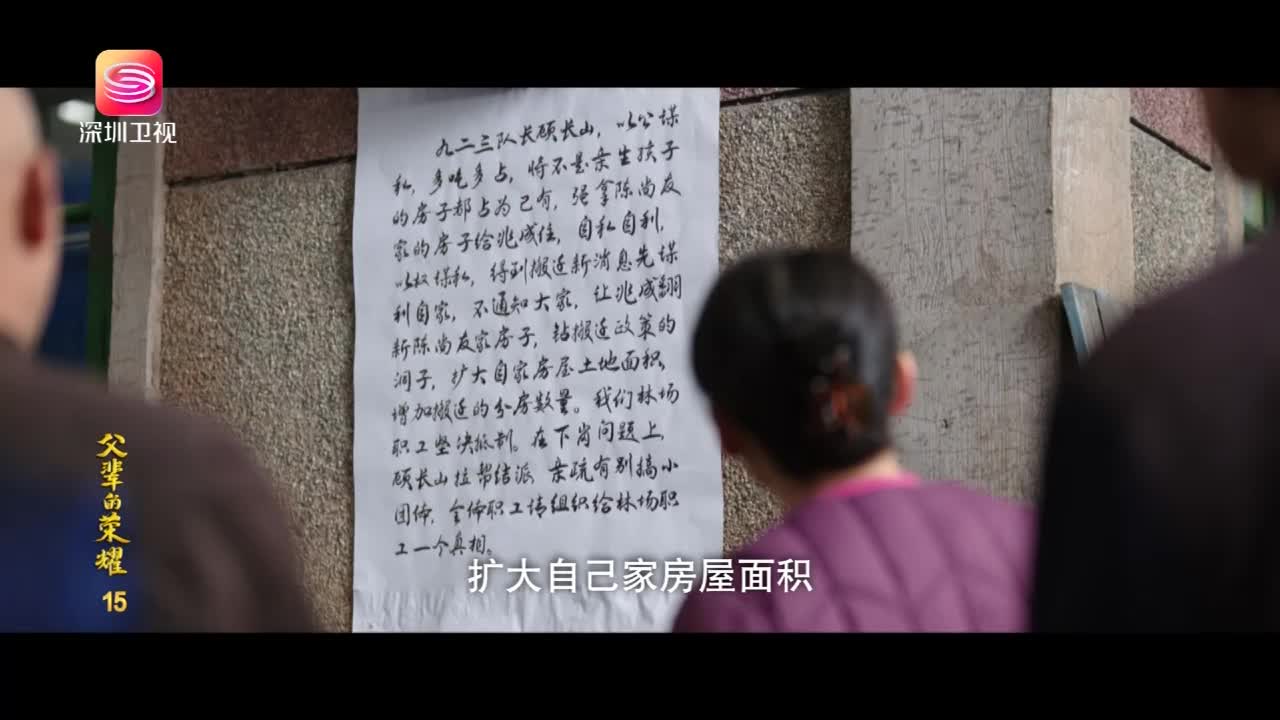 深圳卫视
九二三队长顾长山，以公谋
私，多吃多占，将不是亲生孩子
的房子都占为己有，强拿陈尚友
家的房子给兆成住，自私自利，
以权谋私，得到搬迁新消息先谋
利自家，不通知大家，让兆成翻
新陈尚友家房子，钻搬迁政策的
洞子，扩大自家房屋土地面积，
增加搬迁的分房数量。我们林场
职工坚决抵制。在下岗问题上，
顾长山拉帮结派 亲疏有别搞小
团体，全体职工请组织给林场职
工一个真相。
扩大自己家房屋面积
父辈的荣耀
15